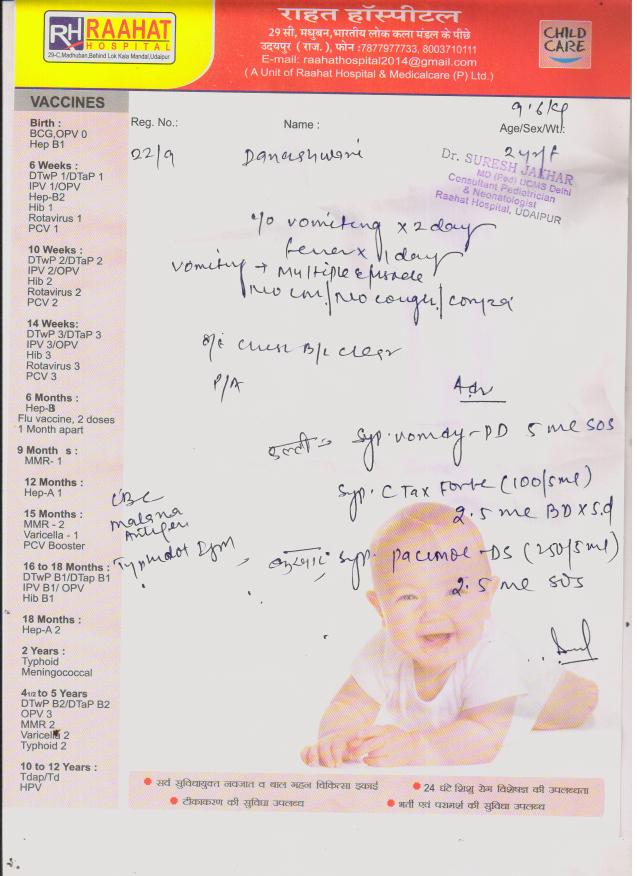 RH RAAHAT
HOSPITAL
29-C,Madhuban,Behind Lok Kala Mandal,Udaipur
राहत हॉस्पीटल
29 सी, मधुबन,भारतीय लोक कला मंडल के पीछे
उदयपुर ( राज. ), फोन :7877977733, 8003710111
E-mail: raahathospital2014@gmail.com
( A Unit of Raahat Hospital & Medicalcare (P) Ltd.)
CHILD
CARE
VACCINES
Birth :
BCG,OPV 0
Hep B1
6 Weeks :
DTwP 1/DTaP 1
IPV 1/OPV
Hep-B2
Hib 1
Rotavirus 1
PCV 1
10 Weeks :
DTwP 2/DTaP 2
IPV 2/OPV
Hib 2
Rotavirus 2
PCV 2
14 Weeks:
DTwP 3/DTaP 3
IPV 3/OPV
Hib 3
Rotavirus 3
PCV 3
6 Months :
Hep-B
Flu vaccine, 2 doses
1 Month apart
9 Month s :
MMR- 1
12 Months :
Hep-A 1
15 Months :
MMR - 2
Varicella - 1
PCV Booster
16 to 18 Months :
DTwP B1/DTap B1
IPV B1/ OPV
Hib B1
18 Months :
Hep-A 2
2 Years :
Typhoid
Meningococcal
41/2 to 5 Years
DTwP B2/DTaP B2
OPV 3
MMR 2
Varicella 2
Typhoid 2
10 to 12 Years :
Tdap/Td
HPV
9.6 kg
Reg. No.: Name : Age/Sex/Wt.:
22/9 Danashwari 2yr/f
Dr. SURESH JAKHAR
MD (Ped) UCMS Delhi
Consultant Pediatrician
& Neonatologist
Raahat Hospital, UDAIPUR
c/o vomiting x 2 day
fever x 1 day
vomiting → Multiple Episode
No / No cough /
o/e chest B/L clear
P/A
Adv
उल्टी Syp. vomday-PD 5 ml SOS
Syp. C Tax Forte (100/5ml)
2.5 ml BD x 5d
CBC
Malaria
Antigen
Typhidot IgM
बुखार Syp. Pacimol-DS (250/5ml)
2.5 ml SOS
सर्व सुविधायुक्त नवजात व बाल गहन चिकित्सा इकाई
24 घंटे शिशु रोग विशेषज्ञ की उपलब्धता
टीकाकरण की सुविधा उपलब्ध
भर्ती एवं परामर्श की सुविधा उपलब्ध